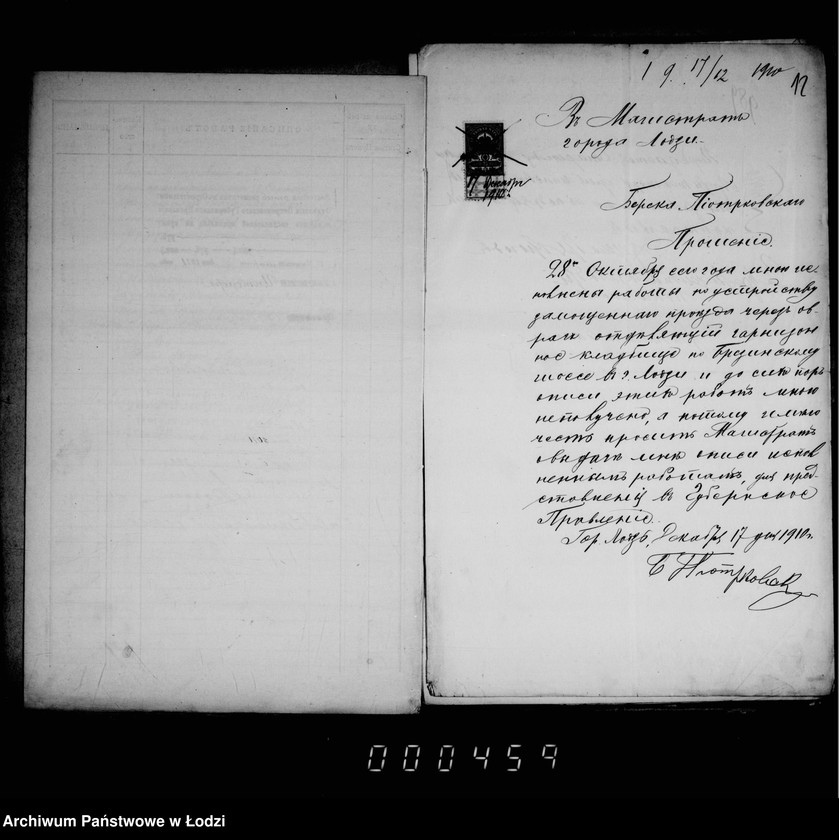 17/12 1910
12
Въ Магистратъ
города Лодзи.
17 Декабря
1910 г.
Берека Піотрковскаго
Прошеніе.
28го Октября сего года мною ис-
полнены работы по устройству
замощеннаго проѣзда черезъ ов-
рагъ отдѣляющій гарнизон
ное кладбище по Бржзинскому
шоссе въ г. Лодзи и до сихъ поръ
описи этихъ работъ мною
неполучено, а потому имѣю
честь просить Магистратъ
выдать мнѣ описи испол
неннымъ работамъ, для пред-
ставленія въ Губернское
Правленіе.
Гор. Лодзь, Декабря 17 дня 1910 г.
Б Піотрковск
000459
Archiwum Państwowe w Łodzi